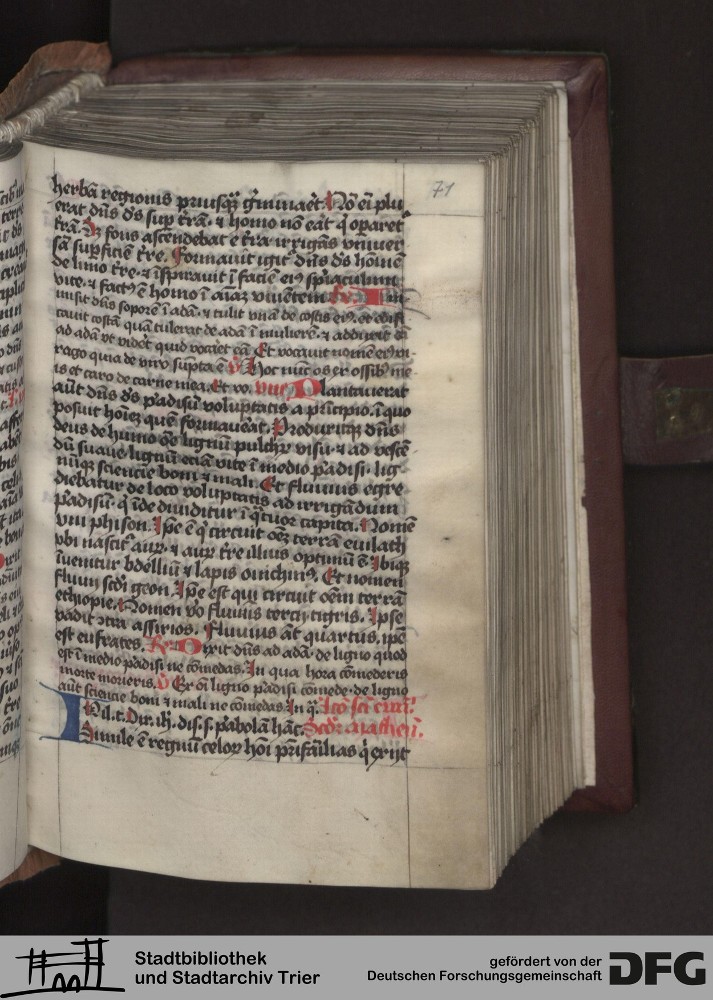 71
herbā regionis priusqƺ gʼminaēt. Nō eī plu
erat dn̄s ds̄ sup tr̄ā. ⁊ homo nō eāt qͥ oparet
tr̄ā. Sƺ fons ascendebat e tr̄a irrigās vniuer
sā supficiē tr̄e. Formauit igit dn̄s ds̄ hoīiem
de limo tr̄e. ⁊ īspirauit ī faciē eiꝰ spiaculum
vite. ⁊ factꝰ ē homo ī aīaʒ viuētem. Re. Im
misit dn̄s soporē ī adā. ⁊ tulit vnā de costis eiꝰ. et edifi
cauit costā quā tulerat de adā ī mulierē. ⁊ adduxit eā
ad adā vt vidēt quid vocaēt eā Et vocauit nomē eiꝰ vi
rago quia de viro supta ē V Hoc nūc os ex ossibꝰ me
is et caro de carne mea. Et vo. Plantauerat
aūt dn̄s ds̄ pʼadisū voluptatis a prīcipio. ī quo
posuit hoīeʒ quē formaueāt. Produxitqƺ dn̄s
deus de humo oē lignū pulchꝝ visu. ⁊ ad vescē
dū suaue. lignū eciā vite ī medio pʼadisi. lig
nūqƺ sciencie boni ⁊ mali. Et fluuius egre
diebatur de loco voluptatis ad irrigādum
pʼadisū. qͥ īde diuiditur ī qͣtuor capita. Nomē
vni phison. Ipe ē qͥ circuit oēʒ terrā euilath
vbi nascitʼ auꝝ. ⁊ auꝝ tr̄e illius optimū ē. Ibiqƺ
īuenitur bdelliū ⁊ lapis onichinꝰ. Et nomen
fluuii scd̄i geon. Ipe est qui circuit oēm terrā
ethiopie. Nomen vo fluuius tercii tigris. Ipse
vadit ꝯtra assirios. Fluuius āt quartus. ipē
est eufrates. Re. Dixit dn̄s ad adā. de ligno quod
est ī medio pʼadisi ne comedas. In qua hora comederis
morte morieris. V Ex oī ligno pʼadisi comede. de ligno
aūt sciencie boni ⁊ mali ne comedas. In q. Lc̄o sci̅ euāʼ.
In il. t. Dix. ih̄. dis. s. pʼabolā hāc. Scd̄ʒ matheū.
Simile ē regnū celoꝝ hoī prīfamilias qͥ exijt
Stadtbibliothek
und Stadtarchiv Trier
gefördert von der
Deutschen Forschungsgemeinschaft
DFG